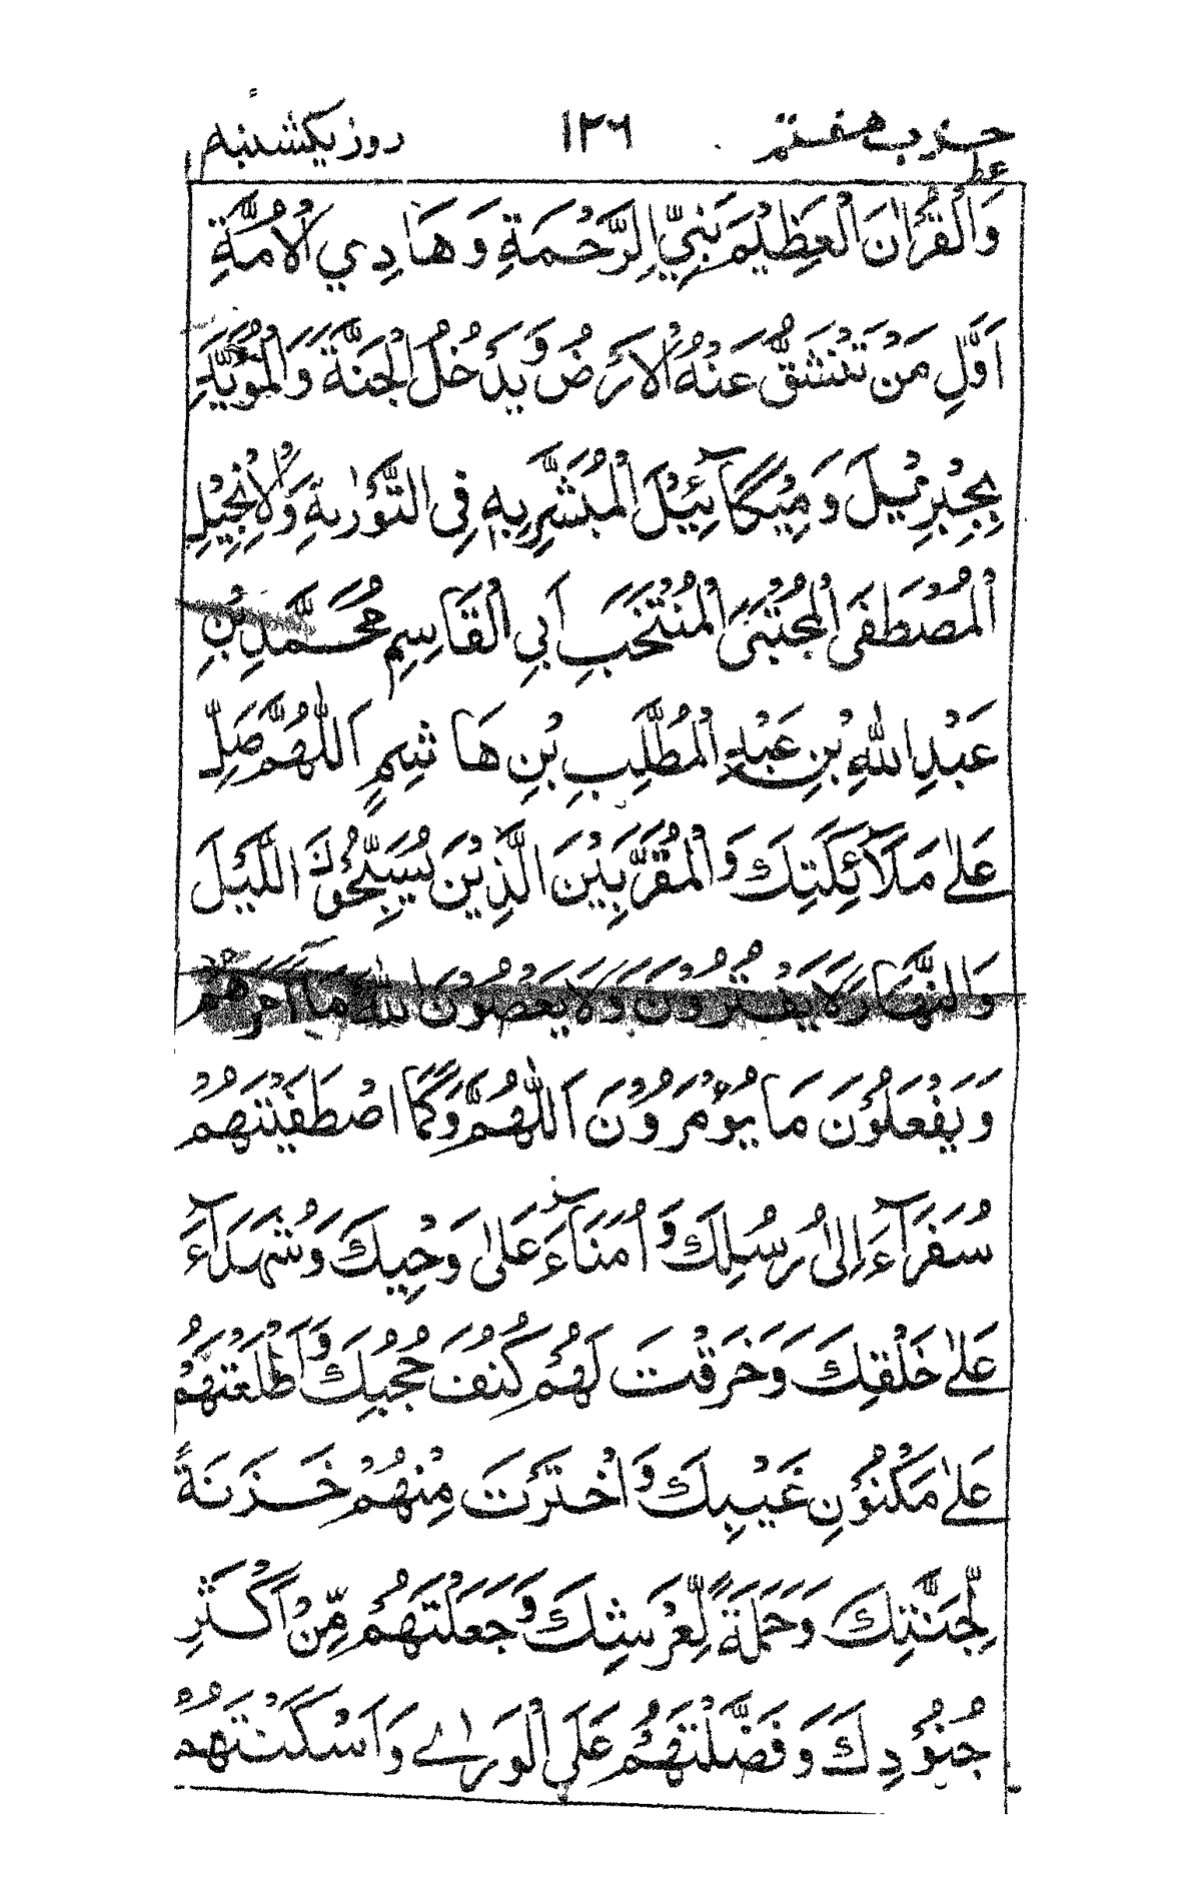 حزب هفتم ١٢٦ روز یکشنبه
وَالْقُرْاٰنَ الْعَظِیْمَ نَبِیِّ الرَّحْمَةِ وَ هَادِي الْاُمَّةِ
اَوَّلِ مَنْ تَنْشَقُّ عَنْهُ الْاَرْضُ وَ یَدْخُلُ الْجَنَّةَ وَ الْمُؤَیَّدِ
بِجِبْرِئِیْلَ وَ مِیْكَآئِیْلَ الْمُبَشَّرِ بِهٖ فِی التَّوْرٰىةِ وَ الْاِنْجِیْلِ
الْمُصْطَفَی الْمُجْتَبَی الْمُنْتَخَبِ اَبِی الْقَاسِمِ مُحَمَّدِ بْنِ
عَبْدِ اللّٰهِ بْنِ عَبْدِ الْمُطَّلِبِ بْنِ هَاشِمٍ اَللّٰهُمَّ صَلِّ
عَلٰی مَلَآئِكَتِكَ وَ الْمُقَرَّبِیْنَ الَّذِیْنَ یُسَبِّحُوْنَكَ اللَّیْلَ
وَ النَّهَارَ لَا یَفْتُرُوْنَ وَ لَا یَعْصُوْنَ اللّٰهَ مَآ اَمَرَهُمْ
وَ یَفْعَلُوْنَ مَا یُؤْمَرُوْنَ اَللّٰهُمَّ وَ كَمَا اصْطَفَیْتَهُمْ
سُفَرَآءَ اِلٰی رُسُلِكَ وَ اُمَنَآءَ عَلٰی وَحْیِكَ وَ شُهَدَآءَ
عَلٰی خَلْقِكَ وَ خَرَقْتَ لَهُمْ كُنُفَ حُجُبِكَ وَ اَطْلَعْتَهُمْ
عَلٰی مَكْنُوْنِ غَیْبِكَ وَ اخْتَرْتَ مِنْهُمْ خَزَنَةً
لِّجَنَّتِكَ وَ حَمَلَةً لِّعَرْشِكَ وَ جَعَلْتَهُمْ مِّنْ اَكْثَرِ
جُنُوْدِكَ وَ فَضَّلْتَهُمْ عَلَی الْوَرٰے وَ اَسْكَنْتَهُمُ